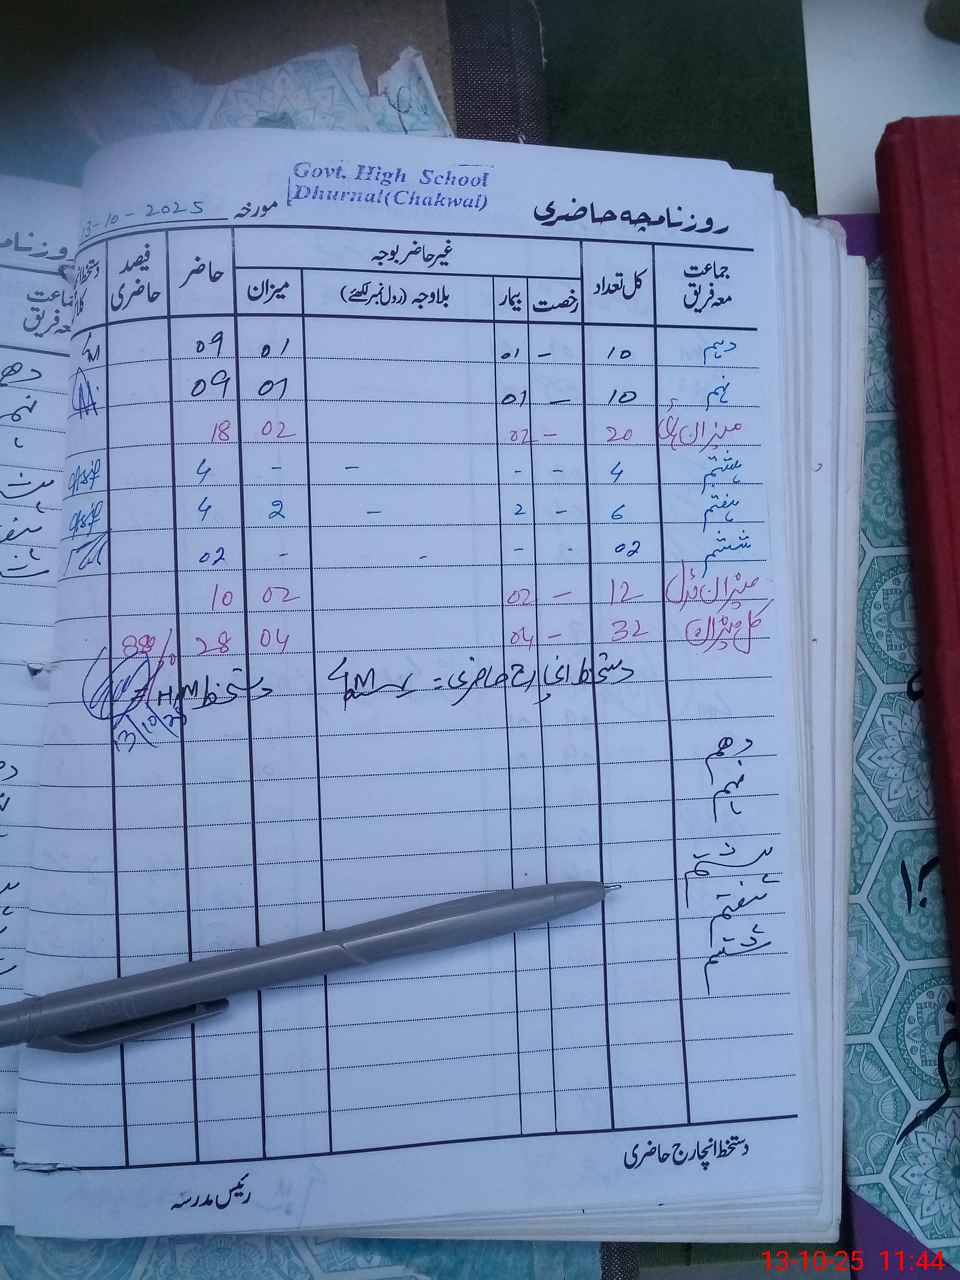 Govt. High School
Dhurnal (Chakwal)
روزنامچہ حاضری مورخہ 13-10-2025
جماعت معہ فریق کل تعداد غیر حاضر بوجہ حاضر فیصد حاضری
رخصت بیمار بلاوجہ (رول نمبر لکھئے) میزان
دہم 10 - 01 01 09
نہم 10 - 01 01 09
میزان ہائی 20 - 02 02 18
ہشتم 4 - - - - 4
ہفتم 6 - 2 - 2 4
ششم 02 - - - - 02
میزان مڈل 12 - 02 02 10
کل میزان 32 - 04 04 28 88%
دستخط انچارج حاضری = دستخط HM =
13/10/25
دھم
نہم
ہشتم
ہفتم
ششم
دستخط انچارج حاضری
رئیس مدرسہ
13-10-25 11:44